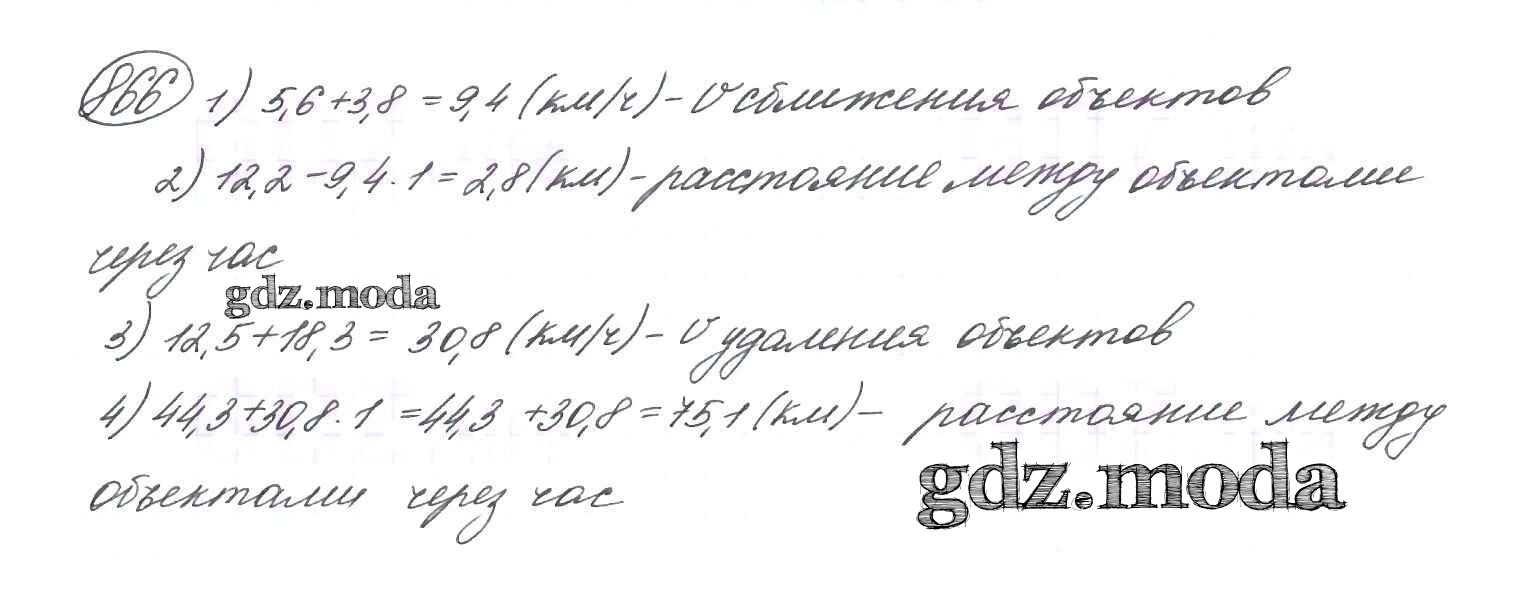 866 1) 5,6+3,8 = 9,4 (км/ч) - V сближения объектов
2) 12,2 - 9,4 · 1 = 2,8 (км) - расстояние между объектами
через час
gdz.moda
3) 12,5+18,3 = 30,8 (км/ч) - V удаления объектов
4) 44,3+30,8 · 1 = 44,3 + 30,8 = 75,1 (км) - расстояние между
gdz.moda
объектами через час